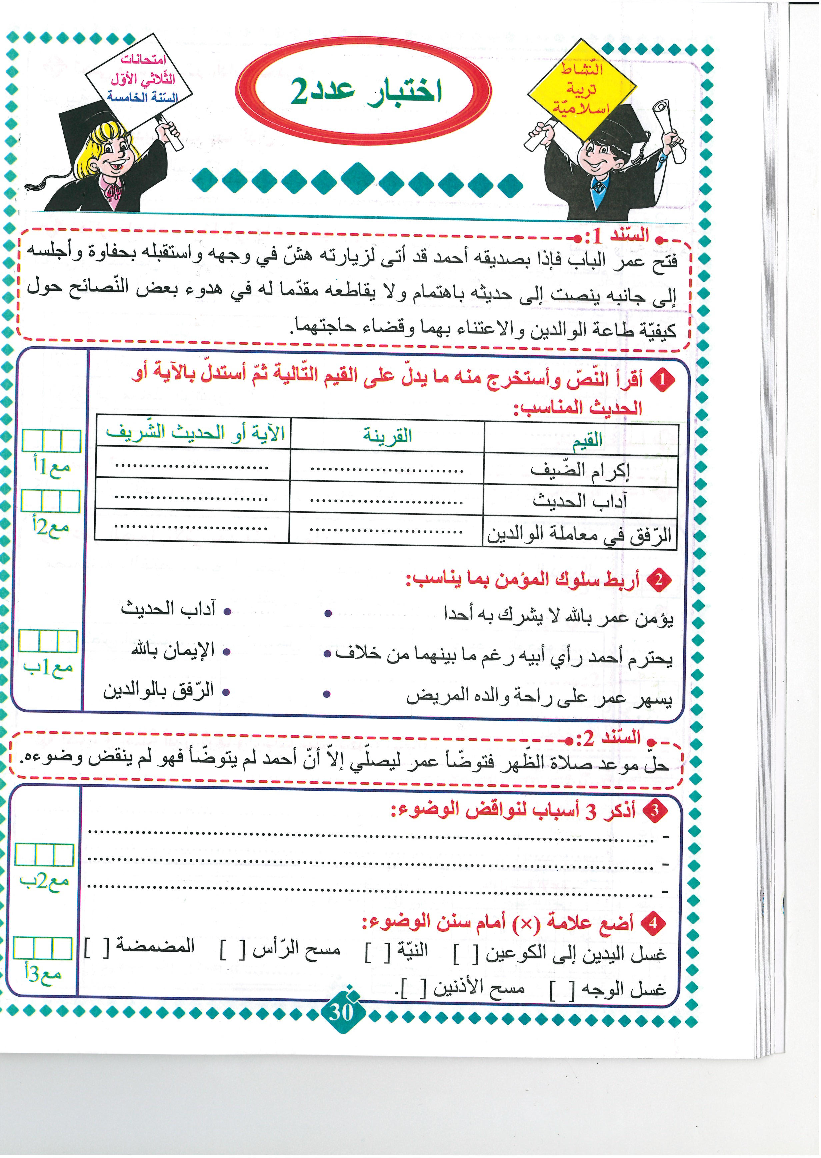 امتحانات
الثّلاثي الأوّل
السّنة الخامسة
اختبار عدد2
النّشاط
تربية
اسلاميّة
السّند 1:
فتح عمر الباب فإذا بصديقه أحمد قد أتى لزيارته هشّ في وجهه واستقبله بحفاوة وأجلسه
إلى جانبه ينصت إلى حديثه باهتمام ولا يقاطعه مقدّما له في هدوء بعض النّصائح حول
كيفيّة طاعة الوالدين والاعتناء بهما وقضاء حاجتهما.
1 أقرأ النّصّ وأستخرج منه ما يدلّ على القيم التّالية ثمّ أستدلّ بالآية أو
الحديث المناسب:
القيم القرينة الآية أو الحديث الشّريف
إكرام الضّيف ........................... ...........................
آداب الحديث ........................... ...........................
الرّفق في معاملة الوالدين ........................... ...........................
مع1أ
مع2أ
2 أربط سلوك المؤمن بما يناسب:
يؤمن عمر بالله لا يشرك به أحدا • • آداب الحديث
يحترم أحمد رأي أبيه رغم ما بينهما من خلاف • • الإيمان بالله
يسهر عمر على راحة والده المريض • • الرّفق بالوالدين
مع1ب
السّند 2:
حلّ موعد صلاة الظّهر فتوضّأ عمر ليصلّي إلاّ أنّ أحمد لم يتوضّأ فهو لم ينقض وضوءه.
3 أذكر 3 أسباب لنواقض الوضوء:
- ...........................................................................
- ...........................................................................
- ...........................................................................
مع2ب
4 أضع علامة (×) أمام سنن الوضوء:
غسل اليدين إلى الكوعين [ ] النيّة [ ] مسح الرّأس [ ] المضمضة [ ]
غسل الوجه [ ] مسح الأذنين [ ].
مع3أ
30